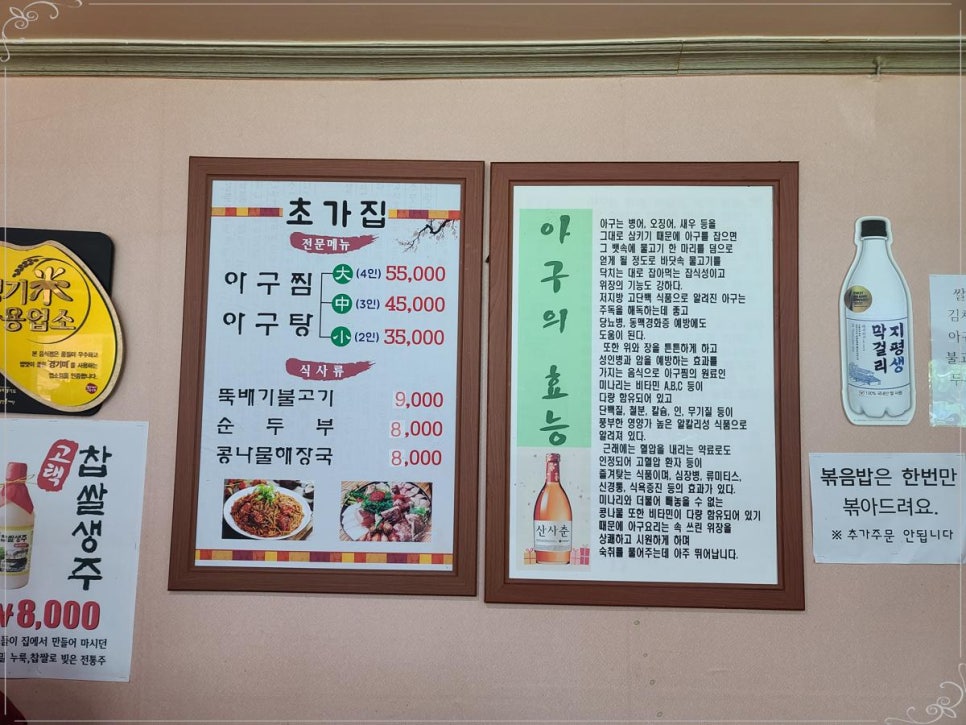 초가집
전문메뉴
아구찜
아구탕
大 (4인) 55,000
中 (3인) 45,000
小 (2인) 35,000
식사류
뚝배기불고기 9,000
순두부 8,000
콩나물해장국 8,000
아구의 효능
아구는 병어, 오징어, 새우 등을
그대로 삼키기 때문에 아구를 잡으면
그 뱃속에 물고기 한 마리를 덤으로
얻게 될 정도로 바닷속 물고기를
닥치는 대로 잡아먹는 잡식성이고
위장의 기능도 강하다.
저지방 고단백 식품으로 알려진 아구는
주독을 해독하는데 좋고
당뇨병, 동맥경화증 예방에도
도움이 된다.
또한 위와 장을 튼튼하게 하고
성인병과 암을 예방하는 효과를
가지는 음식으로 아구찜의 원료인
미나리는 비타민 A,B,C 등이
다량 함유되어 있고
단백질, 철분, 칼슘, 인, 무기질 등이
풍부한 영양가 높은 알칼리성 식품으로
알려져 있다.
근래에는 혈압을 내리는 약료로도
인정되어 고혈압 환자 등이
즐겨찾는 식품이며, 심장병, 류미티스,
신경통, 식욕증진 등의 효과가 있다.
미나리와 더불어 빼놓을 수 없는
콩나물 또한 비타민이 다량 함유되어 있기
때문에 아구요리는 속 쓰린 위장을
상쾌하고 시원하게 하며
숙취를 풀어주는데 아주 뛰어납니다.
산사춘
기米
용업소
본 음식점은 품질이 우수하고
밥맛이 좋은 경기미를 사용하는
업소임을 인증합니다.
고택
찹쌀생주
8,000
들이 집에서 만들어 마시던
누룩,찹쌀로 빚은 전통주
지평생
막걸리
볶음밥은 한번만
볶아드려요.
※ 추가주문 안됩니다
쌀
김
아구
불고
두